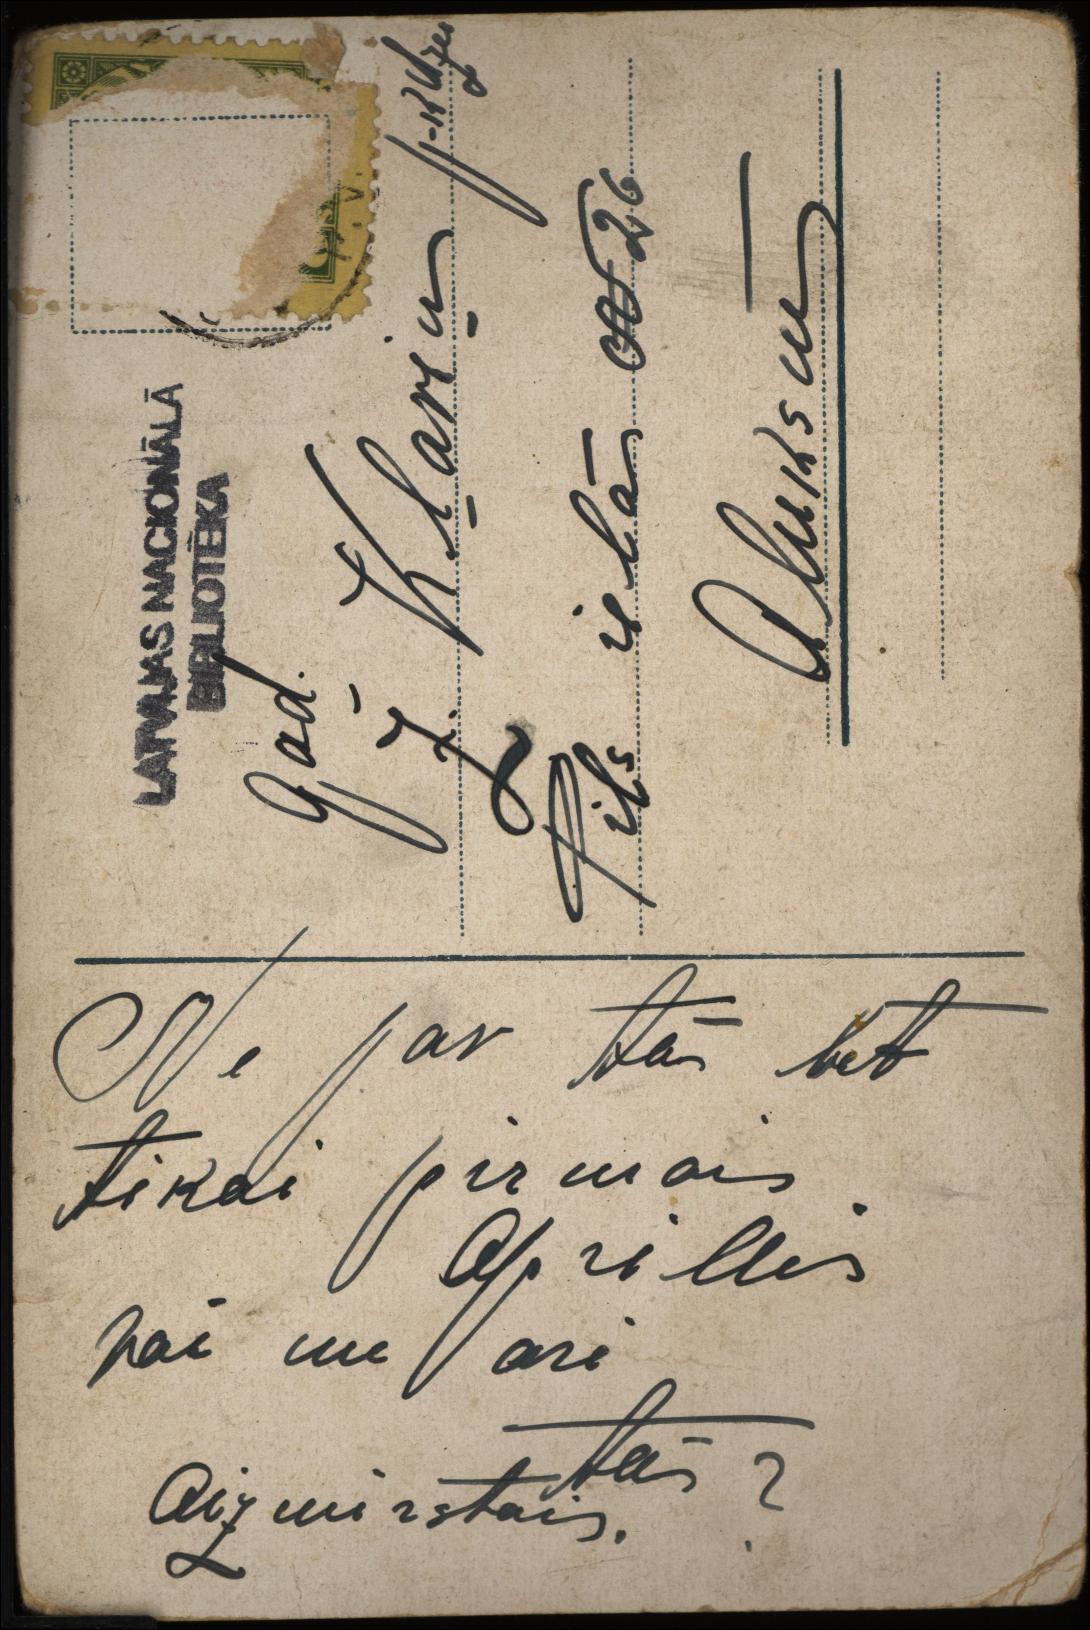 LATVIJAS NACIONĀLĀ
BIBLIOTĒKA
God.
J. Ķlaviņ
Pils ielā 26
Aluksnē
Ne par tās bet
tikai pirmais
Aprillis
vai ne ari
tās ?
Aizmirstais.